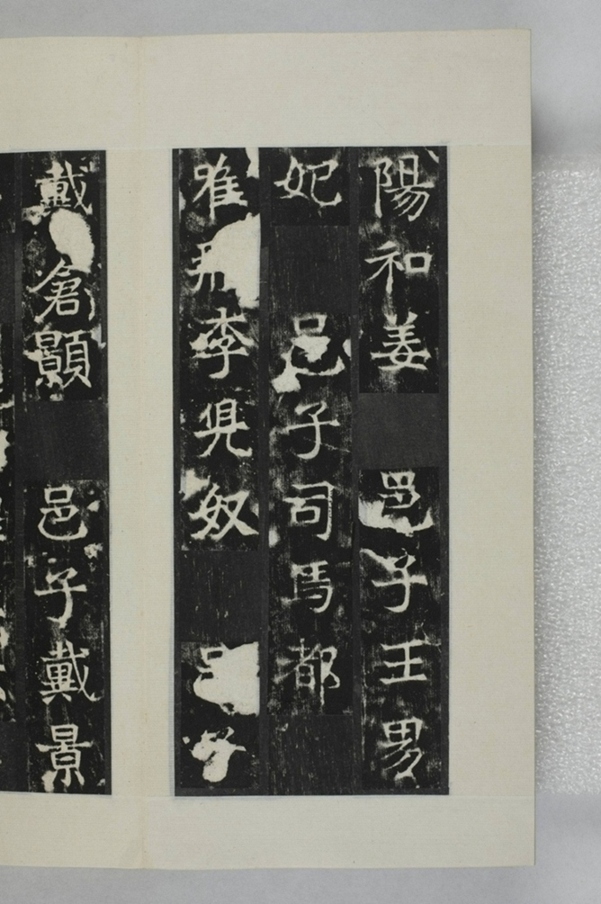 陽和姜 邑子王男
妃 邑子司馬都
維那李兕奴 邑子
戴倉顯 邑子戴景